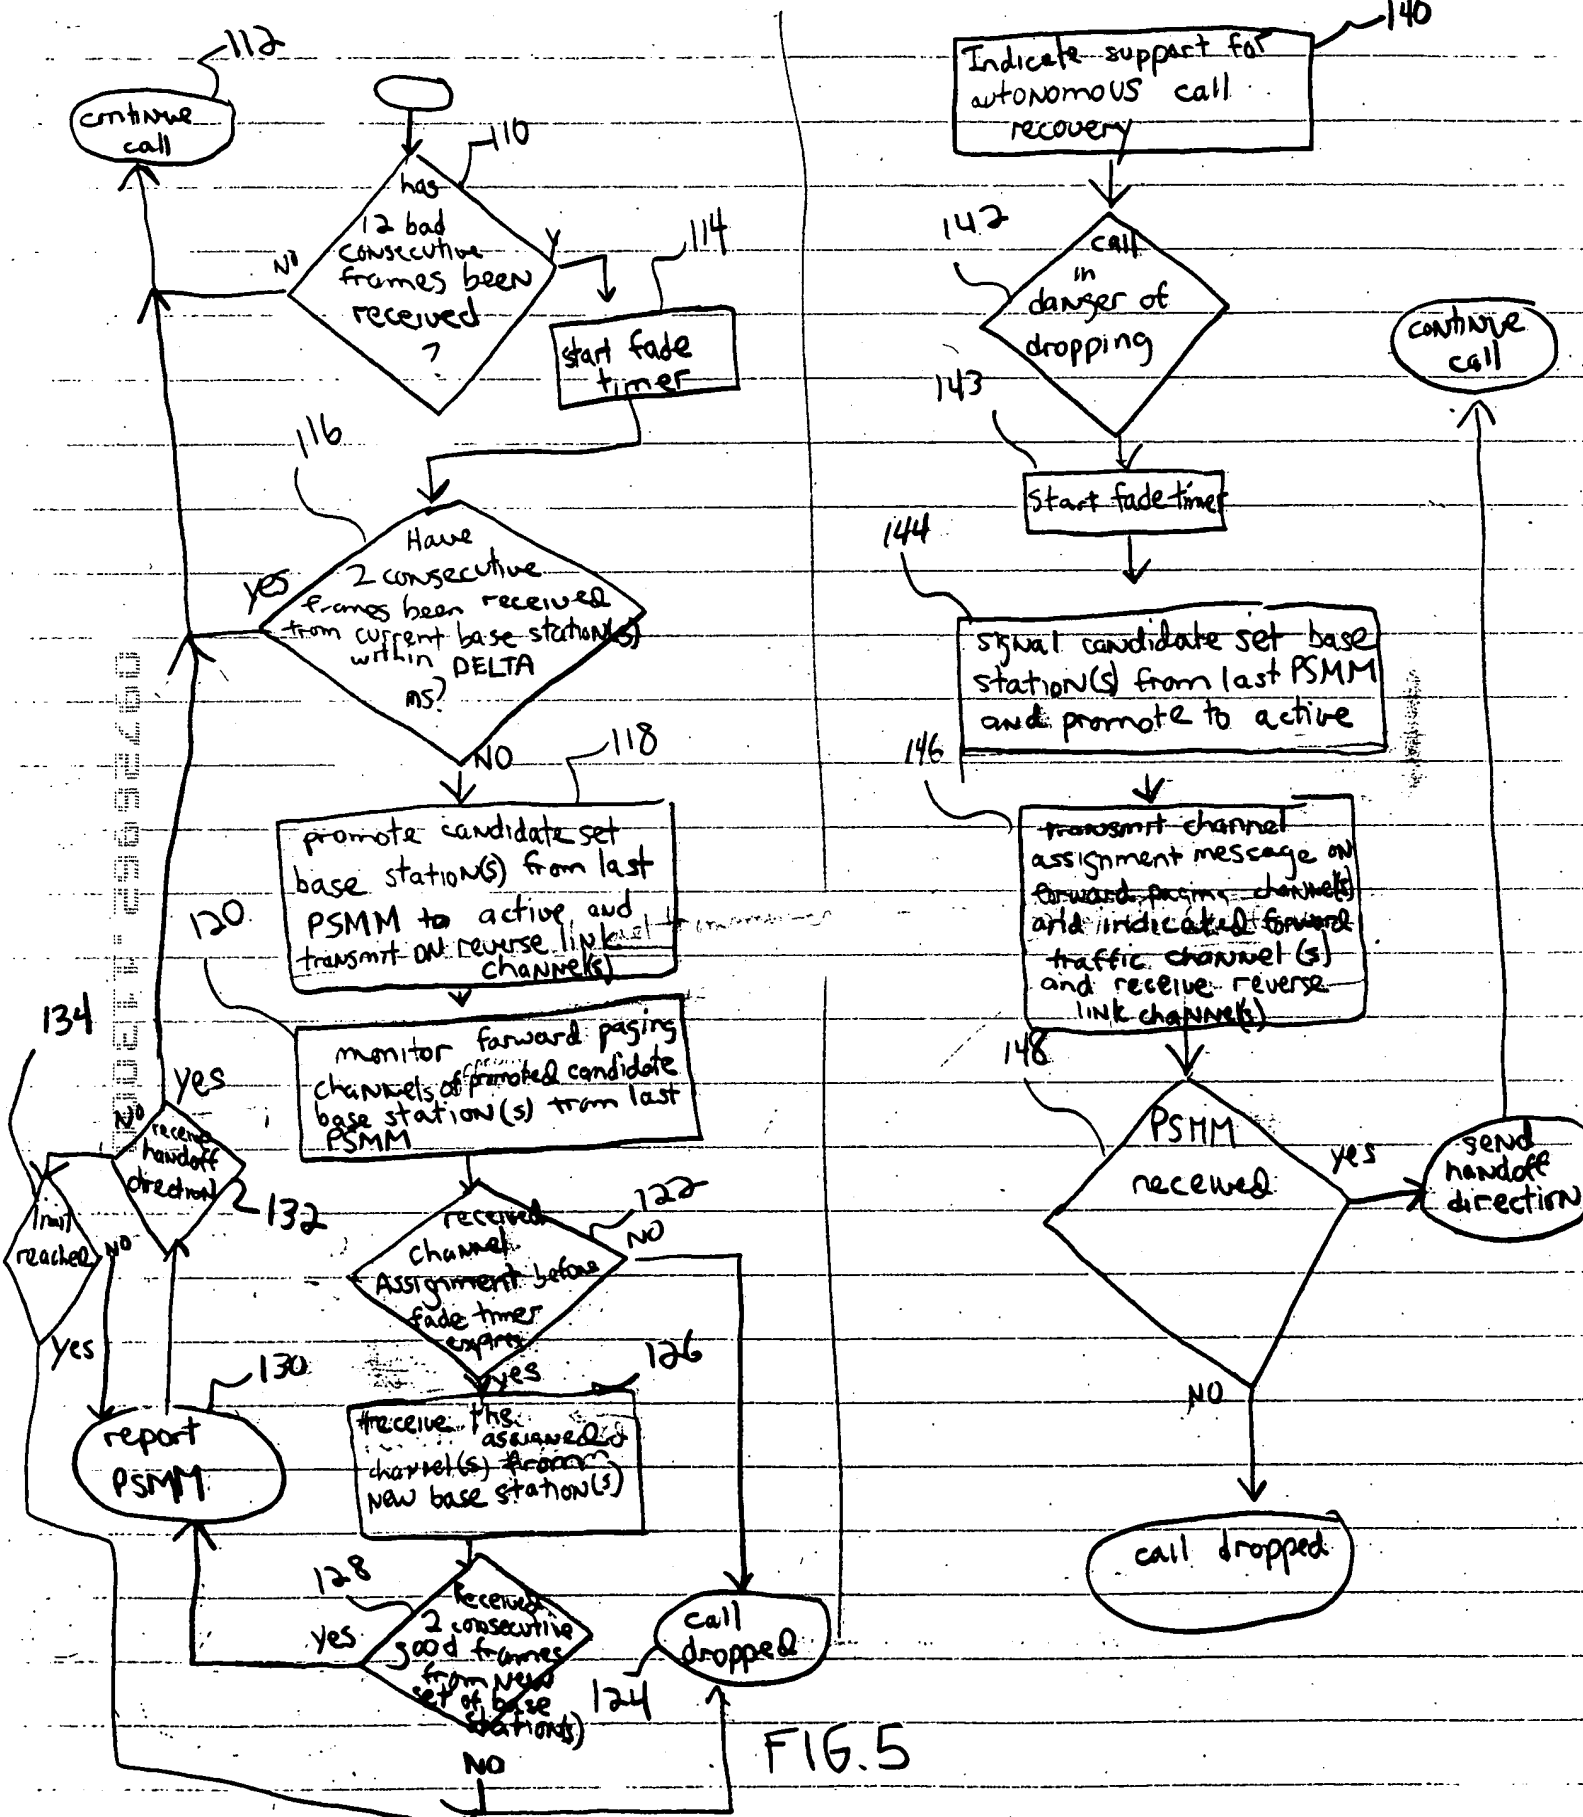 112
continue
call
110
has
12 bad
consecutive
frames been
received
?
NO
Y
114
start fade
timer
116
Have
2 consecutive
frames been received
from current base station(s)
within DELTA
ms?
yes
NO
118
promote candidate set
base station(s) from last
PSMM to active, and
transmit on reverse link
channel(s)
120
monitor forward paging
channels of promoted candidate
base station(s) from last
PSMM
122
received
channel
Assignment before
fade timer
expires
NO
yes
126
receive the
assigned
channel(s) from
new base station(s)
128
Received
2 consecutive
good frames
from new
set of base
station(s)
yes
NO
124
call
dropped
130
report
PSMM
132
receive
handoff
direction
yes
NO
134
limit
reached
NO
yes
140
Indicate support for
autonomous call
recovery
142
call
in
danger of
dropping
143
start fade timer
144
signal candidate set base
station(s) from last PSMM
and promote to active
146
transmit channel
assignment message on
forward paging channel(s)
and indicated forward
traffic channel(s)
and receive reverse
link channel(s)
148
PSMM
received
yes
NO
send
handoff
direction
continue
call
call dropped
FIG. 5